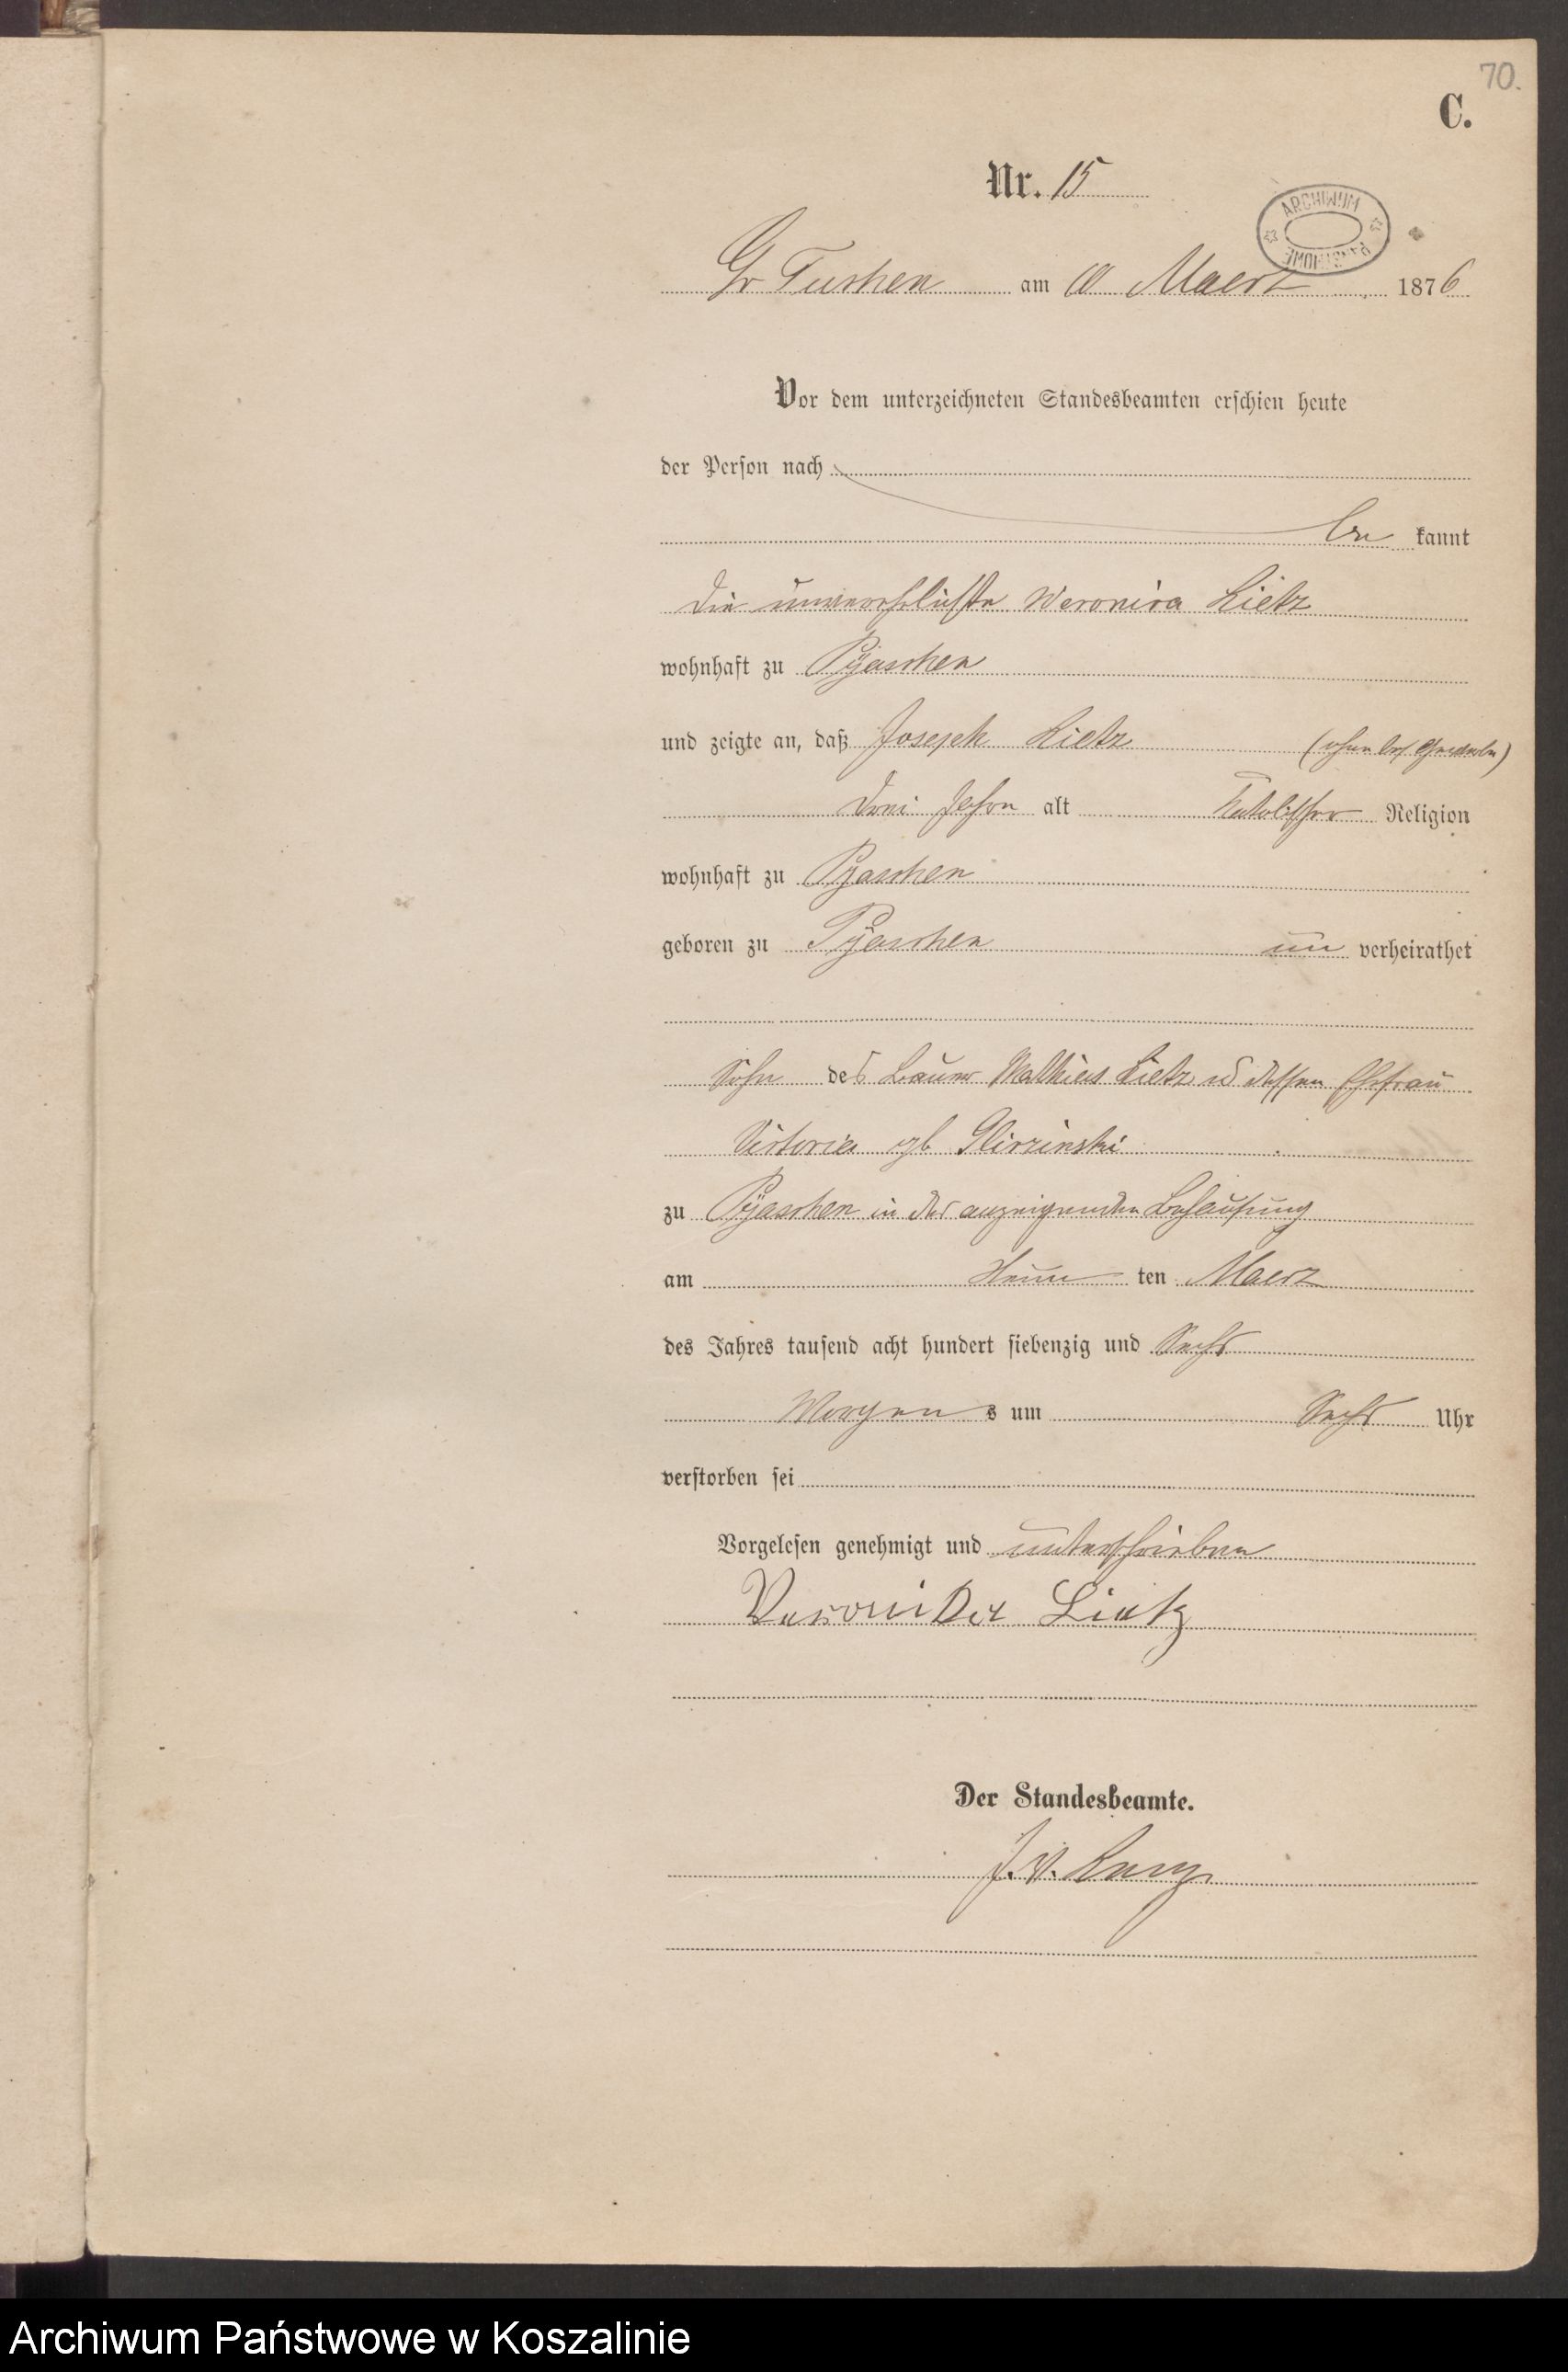 70.
C.
Nr. 15
ARCHIWUM PAŃSTWOWE
Gr Tuchen am 10 Maerz 1876
Vor dem unterzeichneten Standesbeamten erschien heute
der Person nach
be kannt
die unverehelichte Weronica Lietz
wohnhaft zu Pyaschen
und zeigte an, daß Joseph Lietz (ohne
drei Jahre alt Katolischer Religion
wohnhaft zu Pyaschen
geboren zu Pyaschen un verheirathet
Sohn des Bauer Mathias Lietz u dessen Ehefrau
Victoria geb
zu Pyaschen in der anzeigenden Behausung
am Neun ten Maerz
des Jahres tausend acht hundert siebenzig und Sechs
Morgen s um Sechs Uhr
verstorben sei
Vorgelesen genehmigt und unterschrieben
Veronika Lietz
Der Standesbeamte.
J. V.
Archiwum Państwowe w Koszalinie